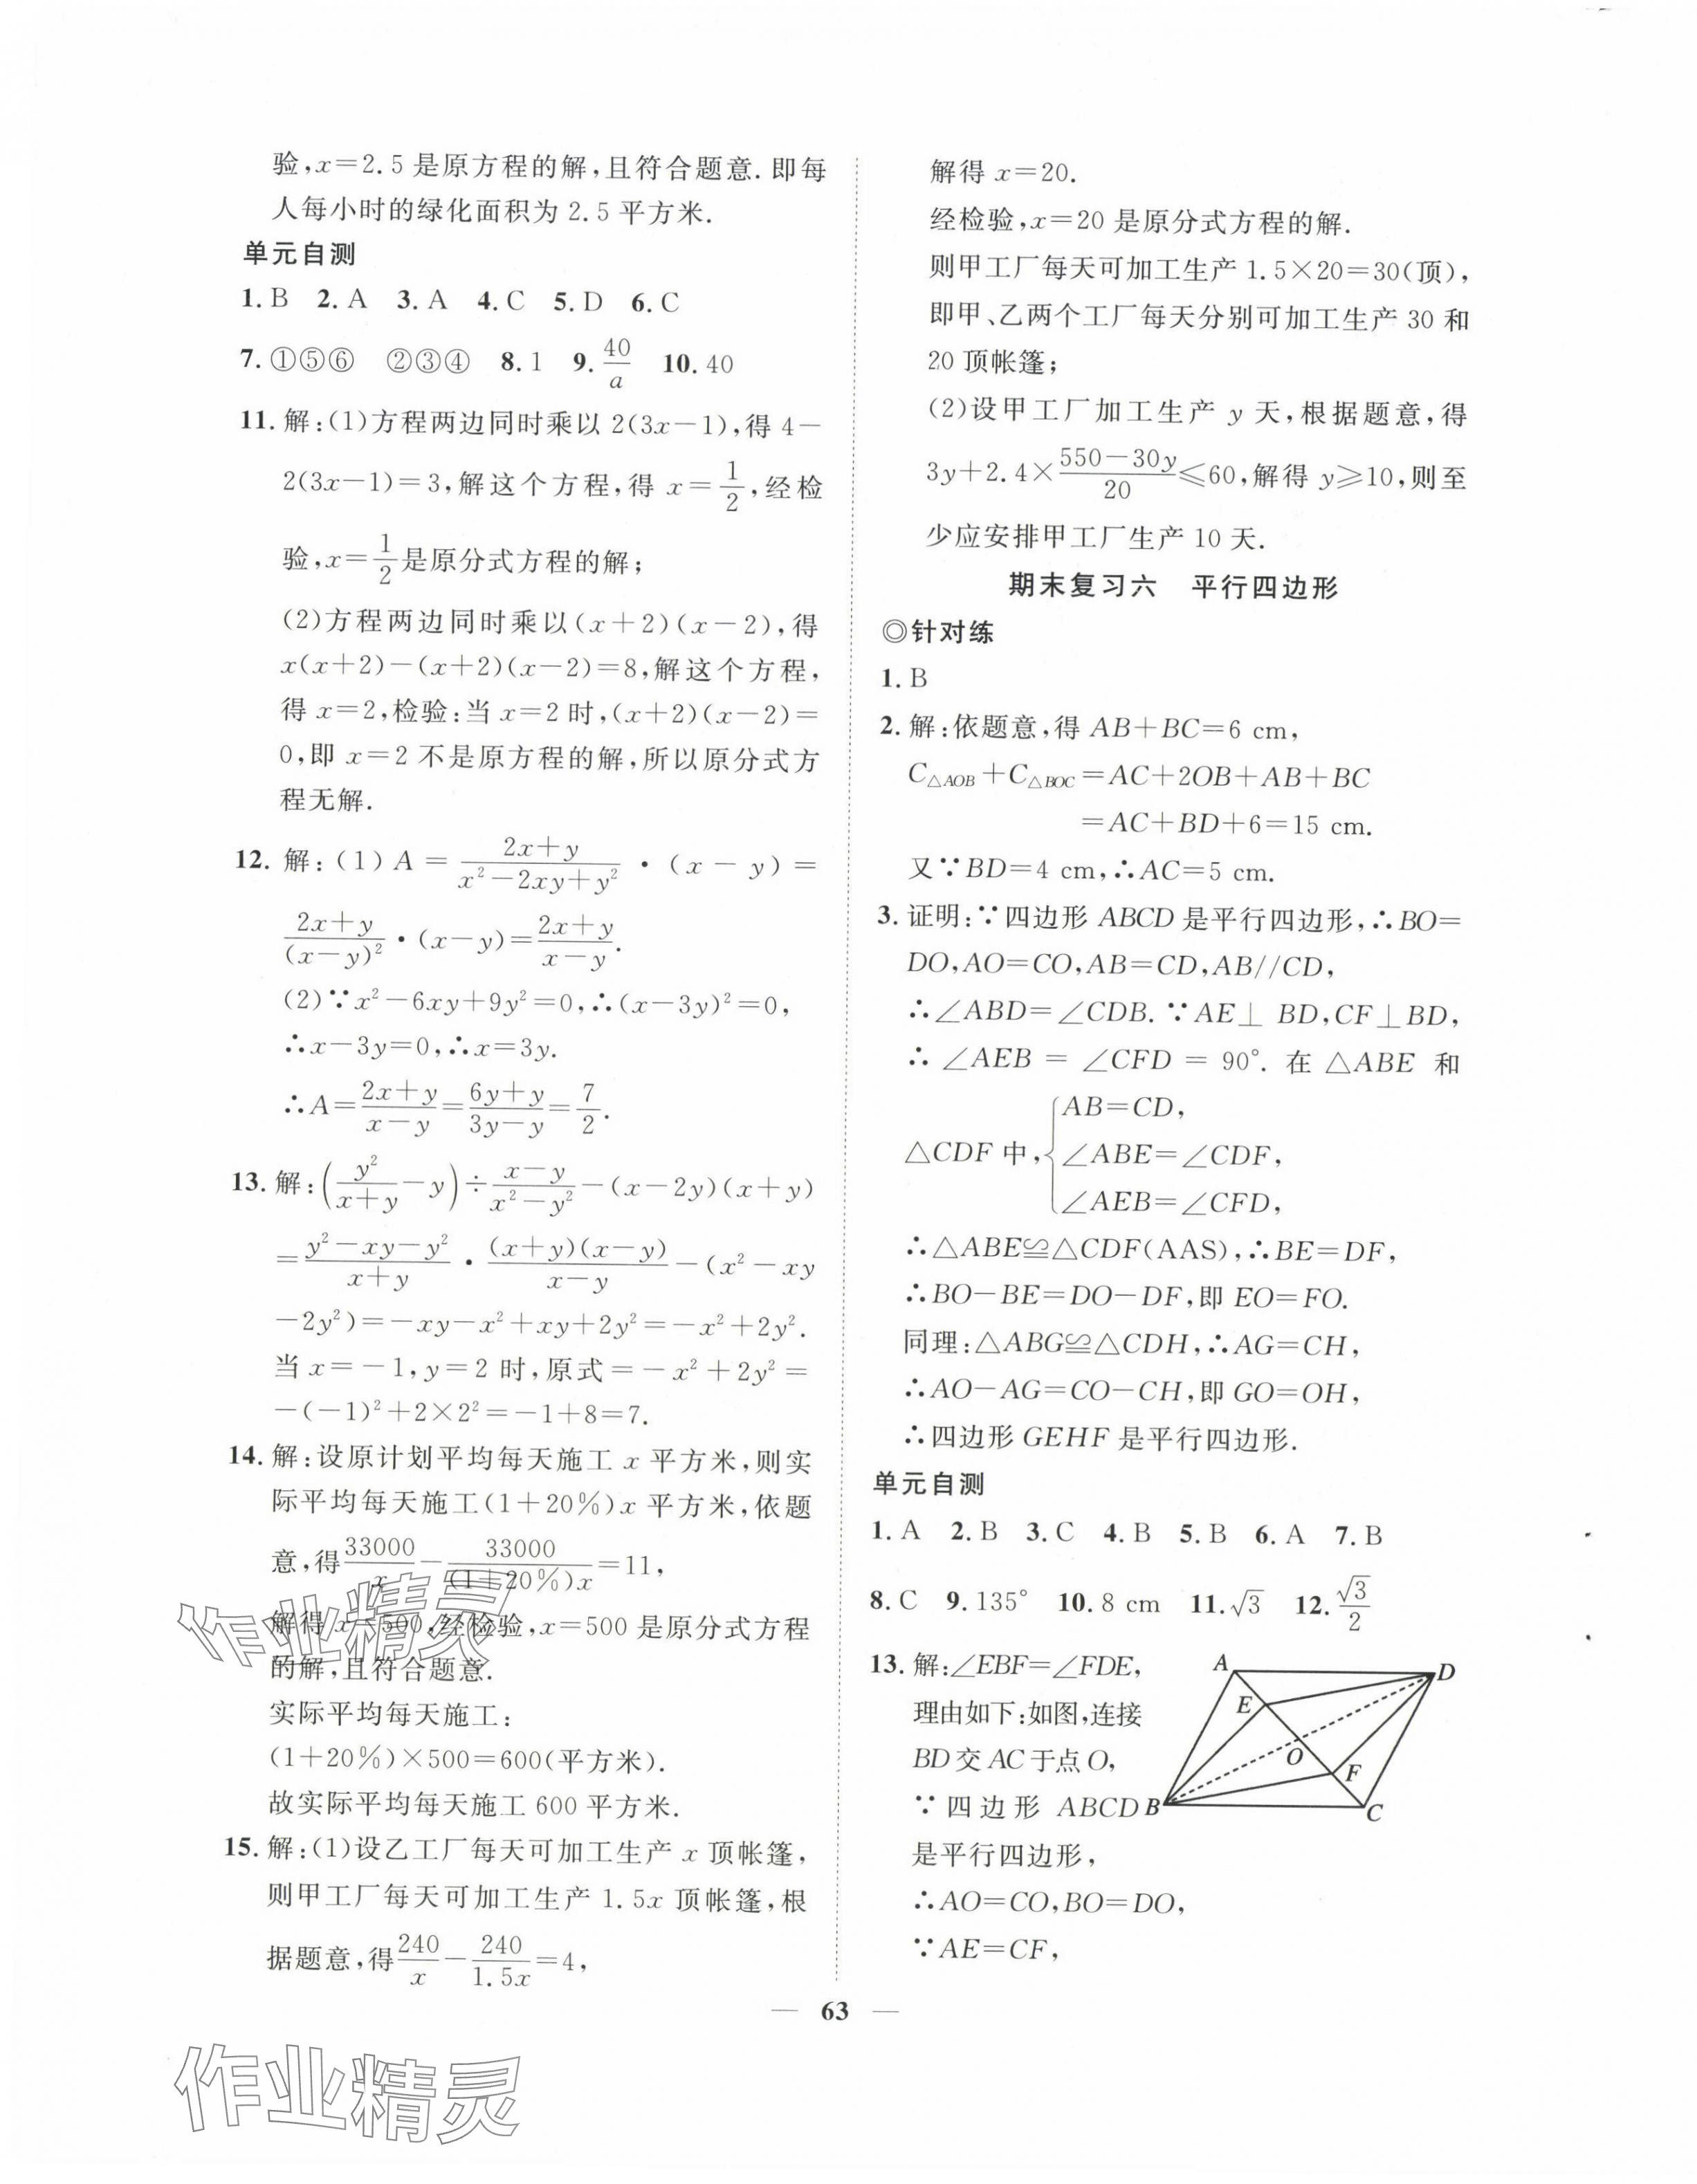 验,x=2.5 是原方程的解,且符合题意.即每
人每小时的绿化面积为 2.5 平方米.
单元自测
1.B 2.A 3.A 4.C 5.D 6.C
7.①⑤⑥ ②③④ 8.1 9.40/a 10.40
11.解:(1)方程两边同时乘以 2(3x-1),得 4-
2(3x-1)=3,解这个方程,得 x=1/2,经检
验,x=1/2是原分式方程的解;
(2)方程两边同时乘以(x+2)(x-2),得
x(x+2)-(x+2)(x-2)=8,解这个方程,
得 x=2,检验:当 x=2 时,(x+2)(x-2)=
0,即 x=2 不是原方程的解,所以原分式方
程无解.
12.解:(1)A=(2x+y)/(x²-2xy+y²)·(x-y)=
(2x+y)/(x-y)²·(x-y)=(2x+y)/(x-y).
(2)∵x²-6xy+9y²=0,∴(x-3y)²=0,
∴x-3y=0,∴x=3y.
∴A=(2x+y)/(x-y)=(6y+y)/(3y-y)=7/2.
13.解:(y²/(x+y)-y)÷(x-y)/(x²-y²)-(x-2y)(x+y)
=(y²-xy-y²)/(x+y)·(x+y)(x-y)/(x-y)-(x²-xy
-2y²)=-xy-x²+xy+2y²=-x²+2y².
当 x=-1,y=2 时,原式=-x²+2y²=
-(-1)²+2×2²=-1+8=7.
14.解:设原计划平均每天施工 x 平方米,则实
际平均每天施工(1+20%)x 平方米,依题
意,得33000/x-33000/(1+20%)x=11,
解得 x=500,经检验,x=500 是原分式方程
的解,且符合题意.
实际平均每天施工:
(1+20%)×500=600(平方米).
故实际平均每天施工 600 平方米.
15.解:(1)设乙工厂每天可加工生产 x 顶帐篷,
则甲工厂每天可加工生产 1.5x 顶帐篷,根
据题意,得240/x-240/1.5x=4,
解得 x=20.
经检验,x=20 是原分式方程的解.
则甲工厂每天可加工生产 1.5×20=30(顶),
即甲、乙两个工厂每天分别可加工生产 30 和
20 顶帐篷;
(2)设甲工厂加工生产 y 天,根据题意,得
3y+2.4×(550-30y)/20≤60,解得 y≥10,则至
少应安排甲工厂生产 10 天.
期末复习六 平行四边形
◎针对练
1.B
2.解:依题意,得 AB+BC=6 cm,
C△AOB+C△BOC=AC+2OB+AB+BC
=AC+BD+6=15 cm.
又∵BD=4 cm,∴AC=5 cm.
3.证明:∵四边形 ABCD 是平行四边形,∴BO=
DO,AO=CO,AB=CD,AB//CD,
∴∠ABD=∠CDB.∵AE⊥BD,CF⊥BD,
∴∠AEB=∠CFD=90°.在△ABE 和
AB=CD,
△CDF 中,{∠ABE=∠CDF,
∠AEB=∠CFD,
∴△ABE≌△CDF(AAS),∴BE=DF,
∴BO-BE=DO-DF,即 EO=FO.
同理:△ABG≌△CDH,∴AG=CH,
∴AO-AG=CO-CH,即 GO=OH,
∴四边形 GEHF 是平行四边形.
单元自测
1.A 2.B 3.C 4.B 5.B 6.A 7.B
8.C 9.135° 10.8 cm 11.√3 12.√3/2
13.解:∠EBF=∠FDE,
理由如下:如图,连接
BD 交 AC 于点 O,
∵四边形 ABCD
是平行四边形,
∴AO=CO,BO=DO,
∵AE=CF,
A
D
E
O
F
B
C
— 63 —
作业精灵
作业精灵